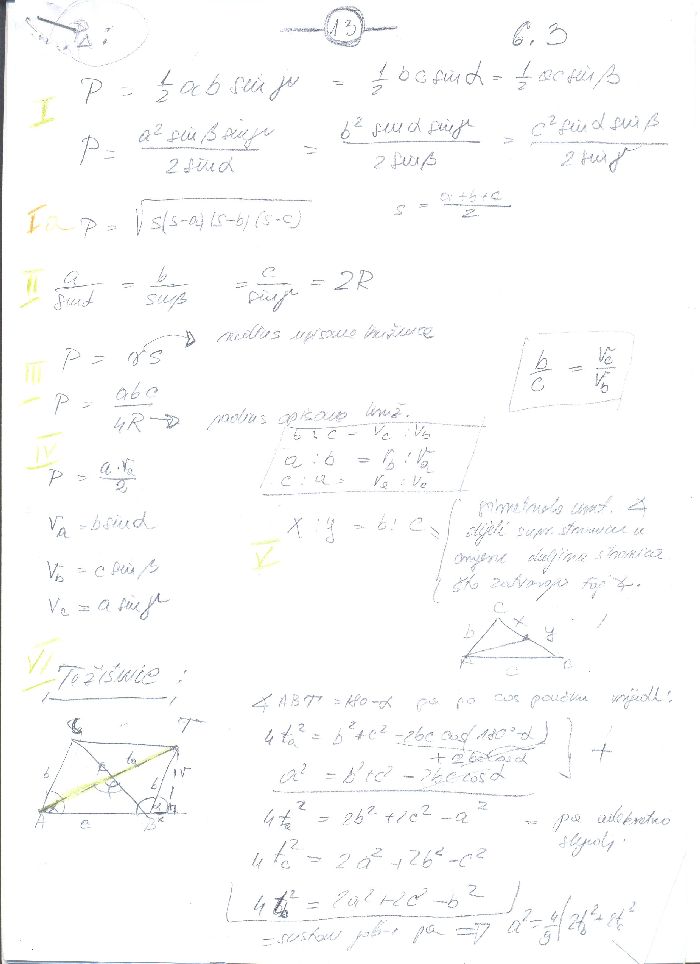 Δ:
13
6.3
I
P = 1/2 ab sin γ = 1/2 bc sin α = 1/2 ac sin β
P = a² sin β sin γ / 2 sin α = b² sin α sin γ / 2 sin β = c² sin α sin β / 2 sin γ
Ia P = √s(s-a)(s-b)(s-c) s = a+b+c / 2
II a / sin α = b / sin β = c / sin γ = 2R
III P = rs → radius upisane kružnice
P = abc / 4R → radius opisane kruž.
b / c = Vc / Vb
b : c = Vc : Vb
a : b = Vb : Va
c : a = Va : Vc
IV
P = a · Va / 2
Va = b sin α
Vb = c sin β
Vc = a sin γ
V
X : y = b : c
simetrala unut. ∢
dijeli supr. stranicu u
omjeru duljina stranica
što zatvaraju taj ∢.
C
X
y
b
c
VI Težišnice :
∢ ABT = 180-α pa po cos poučku vrijedi:
4ta² = b² + c² - 2bc cos(180°-α)
+ 2bc cos α
a² = b² + c² - 2bc cos α
+
4ta² = 2b² + 2c² - a²
= pa
4tc² = 2a² + 2b² - c²
4tb² = 2a² + 2c² - b²
C
T
b
A
c
B
= sustav pa => a² = 4/9 (2tb² + 2tc²